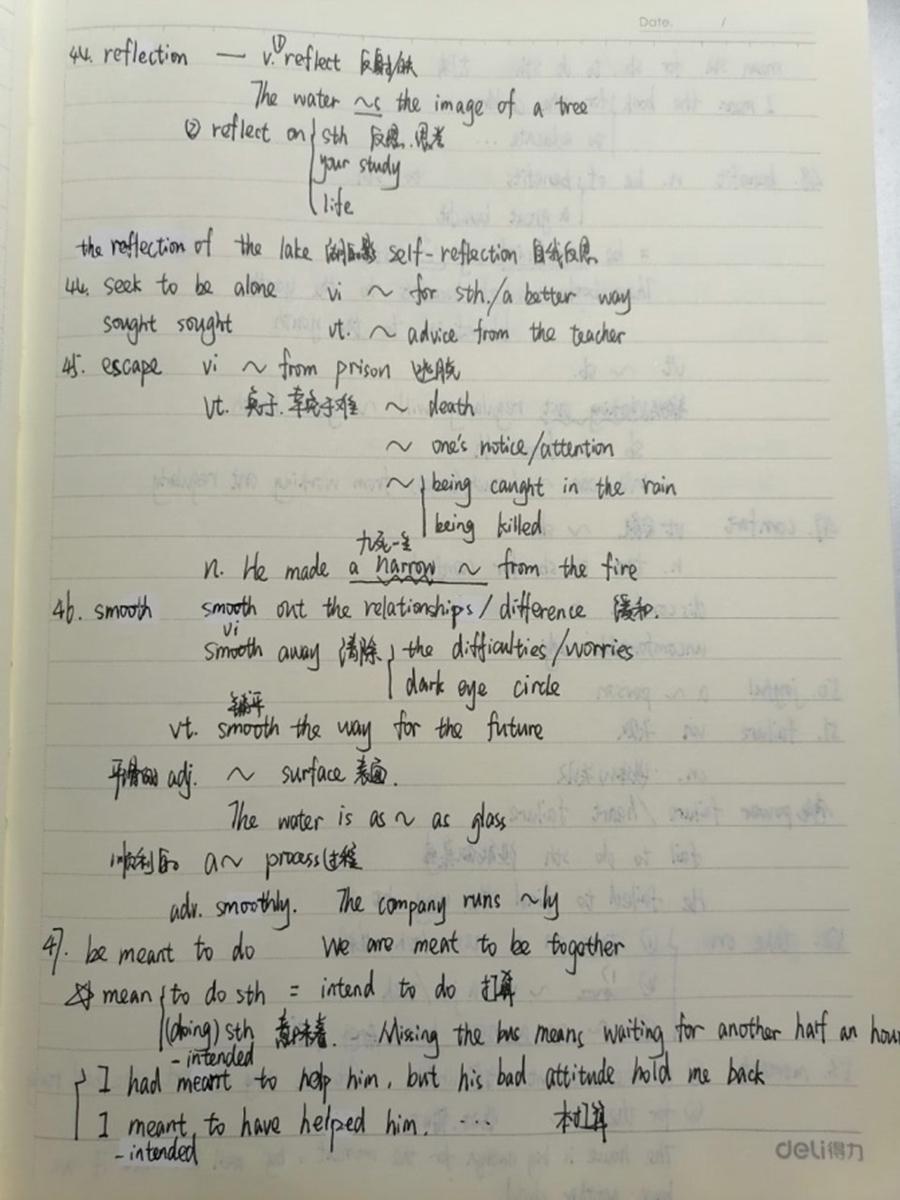 Date. /
44. reflection — v.① reflect 反射/映
The water ~s the image of a tree
② reflect on sth 反思.思考
your study
life
the reflection of the lake 湖面倒影 self-reflection 自我反思
44. seek to be alone vi ~ for sth./a better way
sought sought vt. ~ advice from the teacher
45. escape vi ~ from prison 逃脱
vt. 免于.幸免于难 ~ death
~ one's notice/attention
~ being caught in the rain
being killed
九死一生
n. He made a narrow ~ from the fire
46. smooth smooth out the relationships/difference 缓和.
vi
smooth away 消除 the difficulties/worries
dark eye circle
铺平
vt. smooth the way for the future
平滑的 adj. ~ surface 表面.
The water is as ~ as glass
顺利的 a ~ process 过程
adv. smoothly. The company runs ~ly
47. be meant to do We are meat to be together
☆ mean to do sth = intend to do 打算
(doing) sth 意味着. - Missing the bus means waiting for another half an hour
- intended
I had meant to help him, but his bad attitude hold me back
I meant to have helped him. ... 本打算
- intended
deli得力